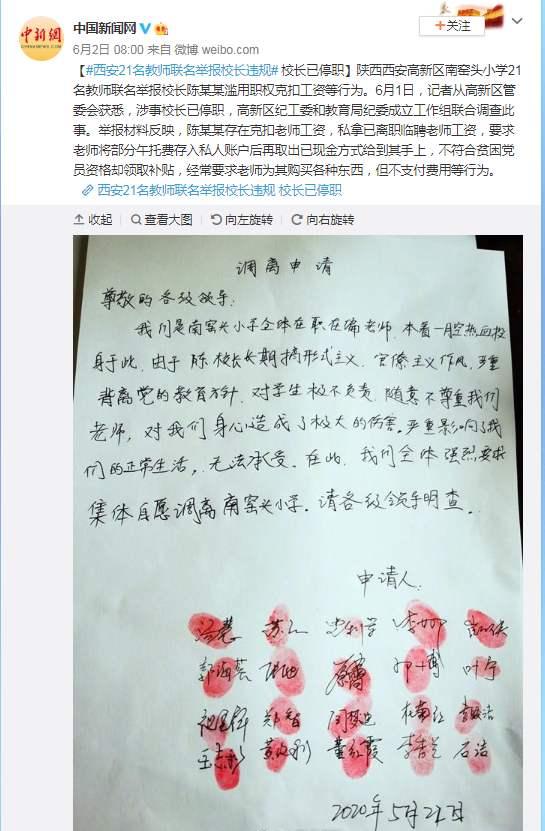 中新網
中国新闻网
6月2日 08:00 来自 微博 weibo.com
+关注
【#西安21名教师联名举报校长违规# 校长已停职】陕西西安高新区南窑头小学21
名教师联名举报校长陈某某滥用职权克扣工资等行为。6月1日，记者从高新区管
委会获悉，涉事校长已停职，高新区纪工委和教育局纪委成立工作组联合调查此
事。举报材料反映，陈某某存在克扣老师工资，私拿已离职临聘老师工资，要求
老师将部分午托费存入私人账户后再取出已现金方式给到其手上，不符合贫困党
员资格却领取补贴，经常要求老师为其购买各种东西，但不支付费用等行为。
西安21名教师联名举报校长违规 校长已停职
收起 查看大图 向左旋转 向右旋转
调离申请
尊敬的各级领导：
我们是南窑头小学全体在职在编老师，本着一腔热血投
身于此，由于陈校长长期搞形式主义、官僚主义作风，严重
背离党的教育方针，对学生极不负责，随意不尊重我们
老师，对我们身心造成了极大的伤害。严重影响了我
们的正常生活，无法承受。在此，我们全体强烈要求
集体自愿调离南窑头小学。请各级领导明查。
申请人：
郭海芸 叶宁
董红霞 石洁
2020年5月21日